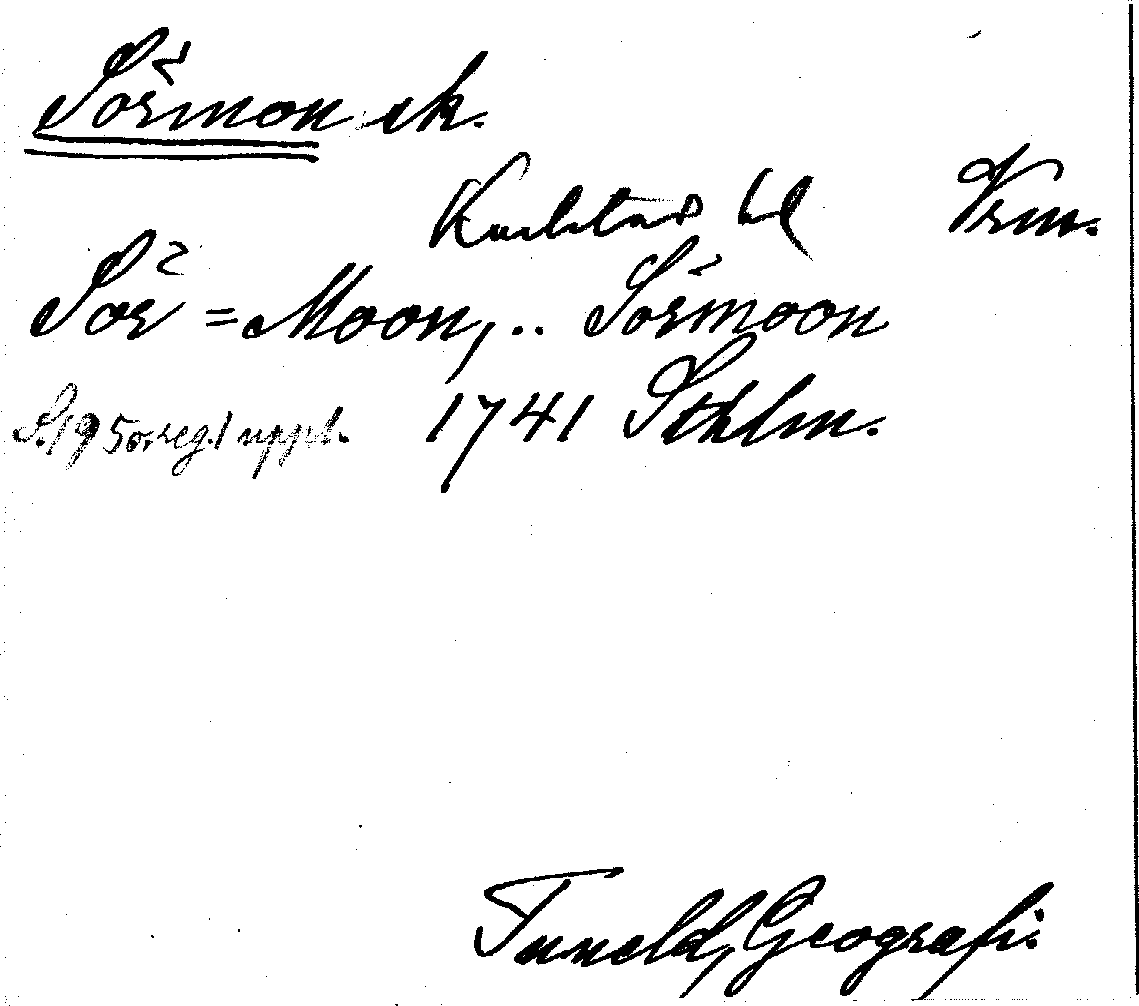 Sörmon sk.
Karlstad bl Vrm.
Sör=Moon, .. Sörmoon
S. 195 o. reg. 1 uppl. 1741 Sthlm.
Tuneld, Geografi.